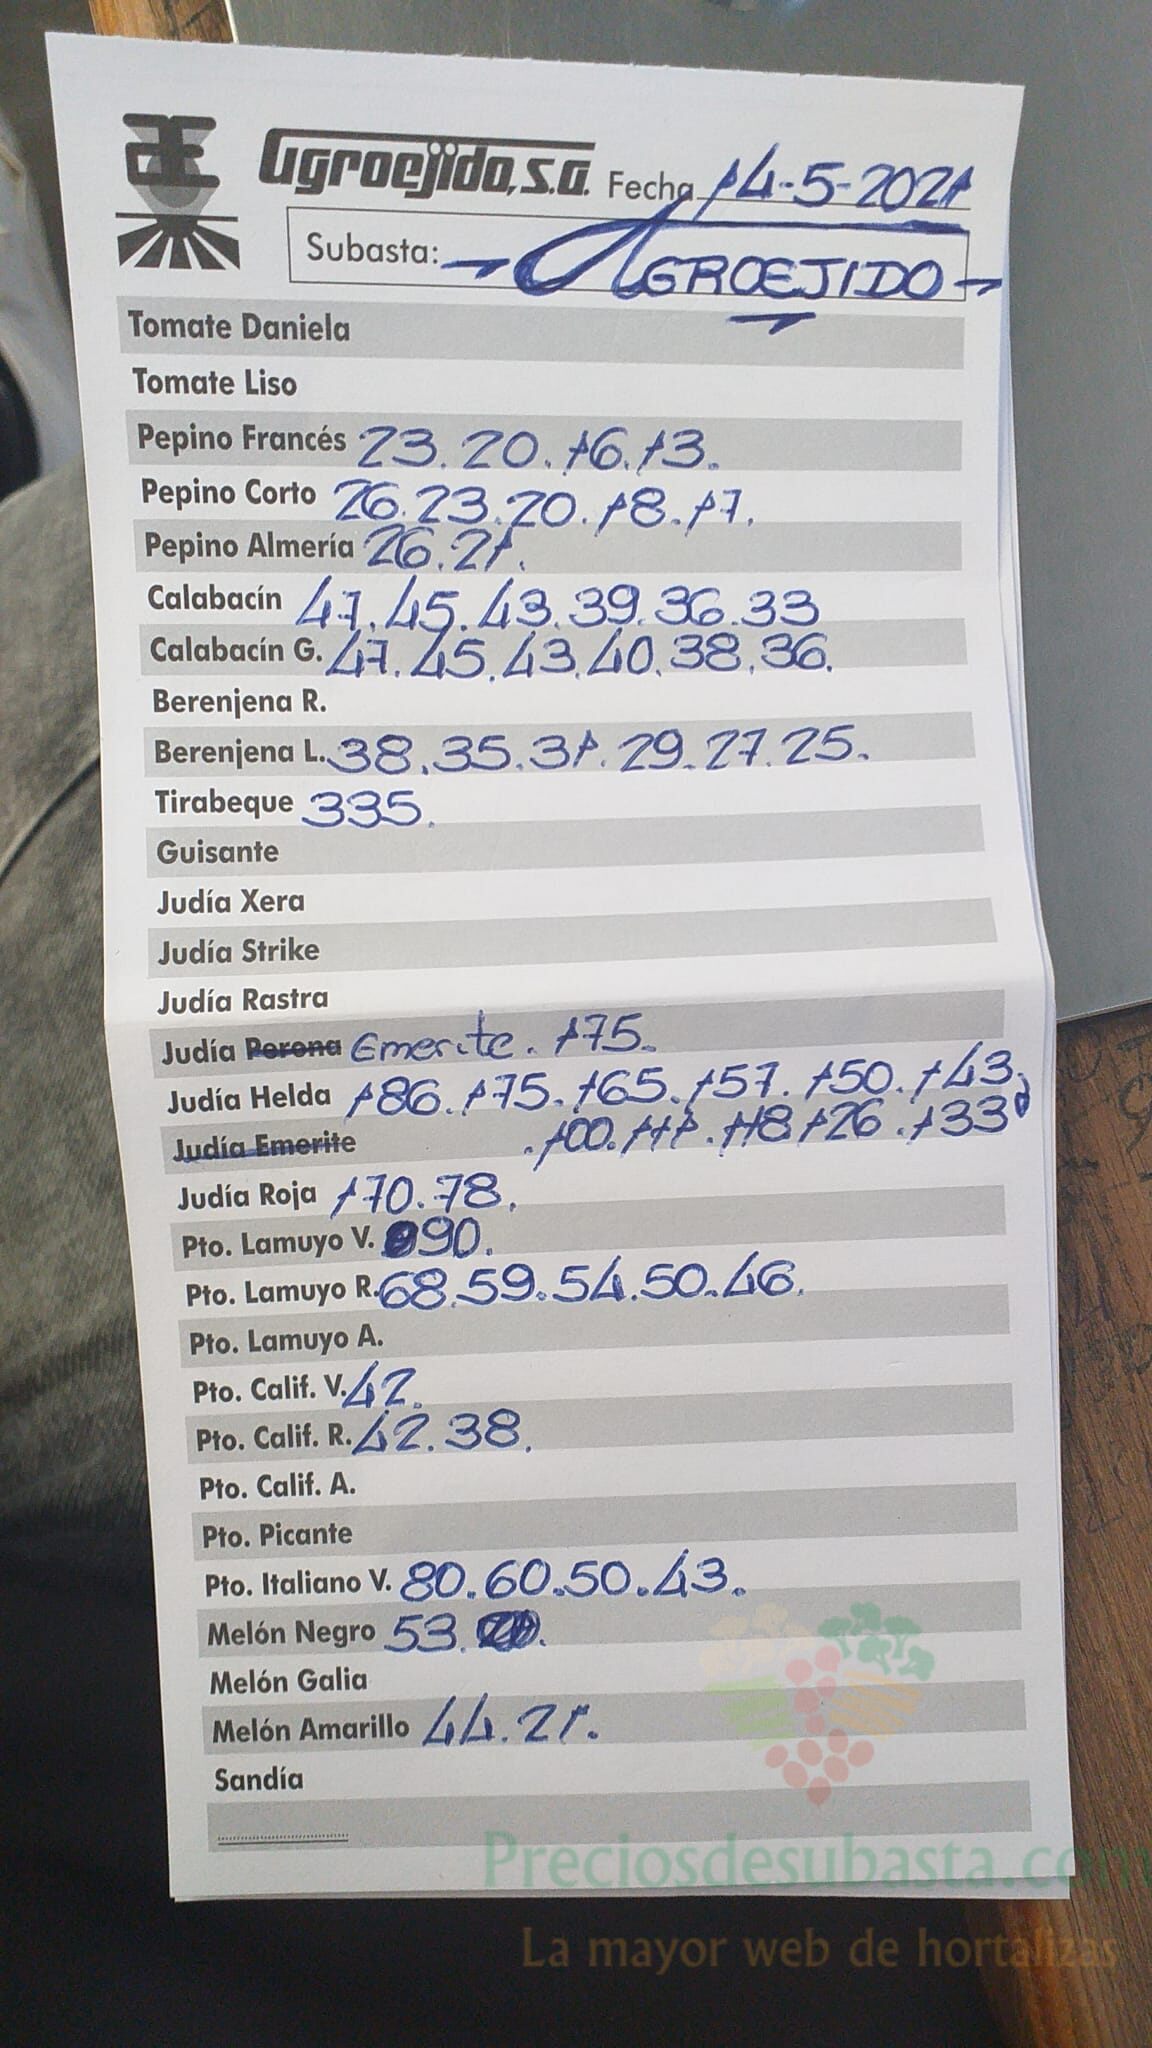 Agroejido, S.A. Fecha 14-5-2021
Subasta: - AGROEJIDO -
Tomate Daniela
Tomate Liso
Pepino Francés 23. 20. 16. 13.
Pepino Corto 26. 23. 20. 18. 17.
Pepino Almería 26. 21.
Calabacín 47. 45. 43. 39. 36. 33
Calabacín G. 47. 45. 43. 40. 38. 36.
Berenjena R.
Berenjena L. 38. 35. 31. 29. 27. 25.
Tirabeque 335.
Guisante
Judía Xera
Judía Strike
Judía Rastra
Judía Perona Emerite. 175.
Judía Helda 186. 175. 165. 157. 150. 143.
Judía Emerite . 100. 111. 118. 126. 133
Judía Roja 170. 78.
Pto. Lamuyo V. 90.
Pto. Lamuyo R. 68. 59. 54. 50. 46.
Pto. Lamuyo A.
Pto. Calif. V. 42.
Pto. Calif. R. 42. 38.
Pto. Calif. A.
Pto. Picante
Pto. Italiano V. 80. 60. 50. 43.
Melón Negro 53.
Melón Galia
Melón Amarillo 44. 21.
Sandía
Preciosdesubasta.com
La mayor web de hortalizas